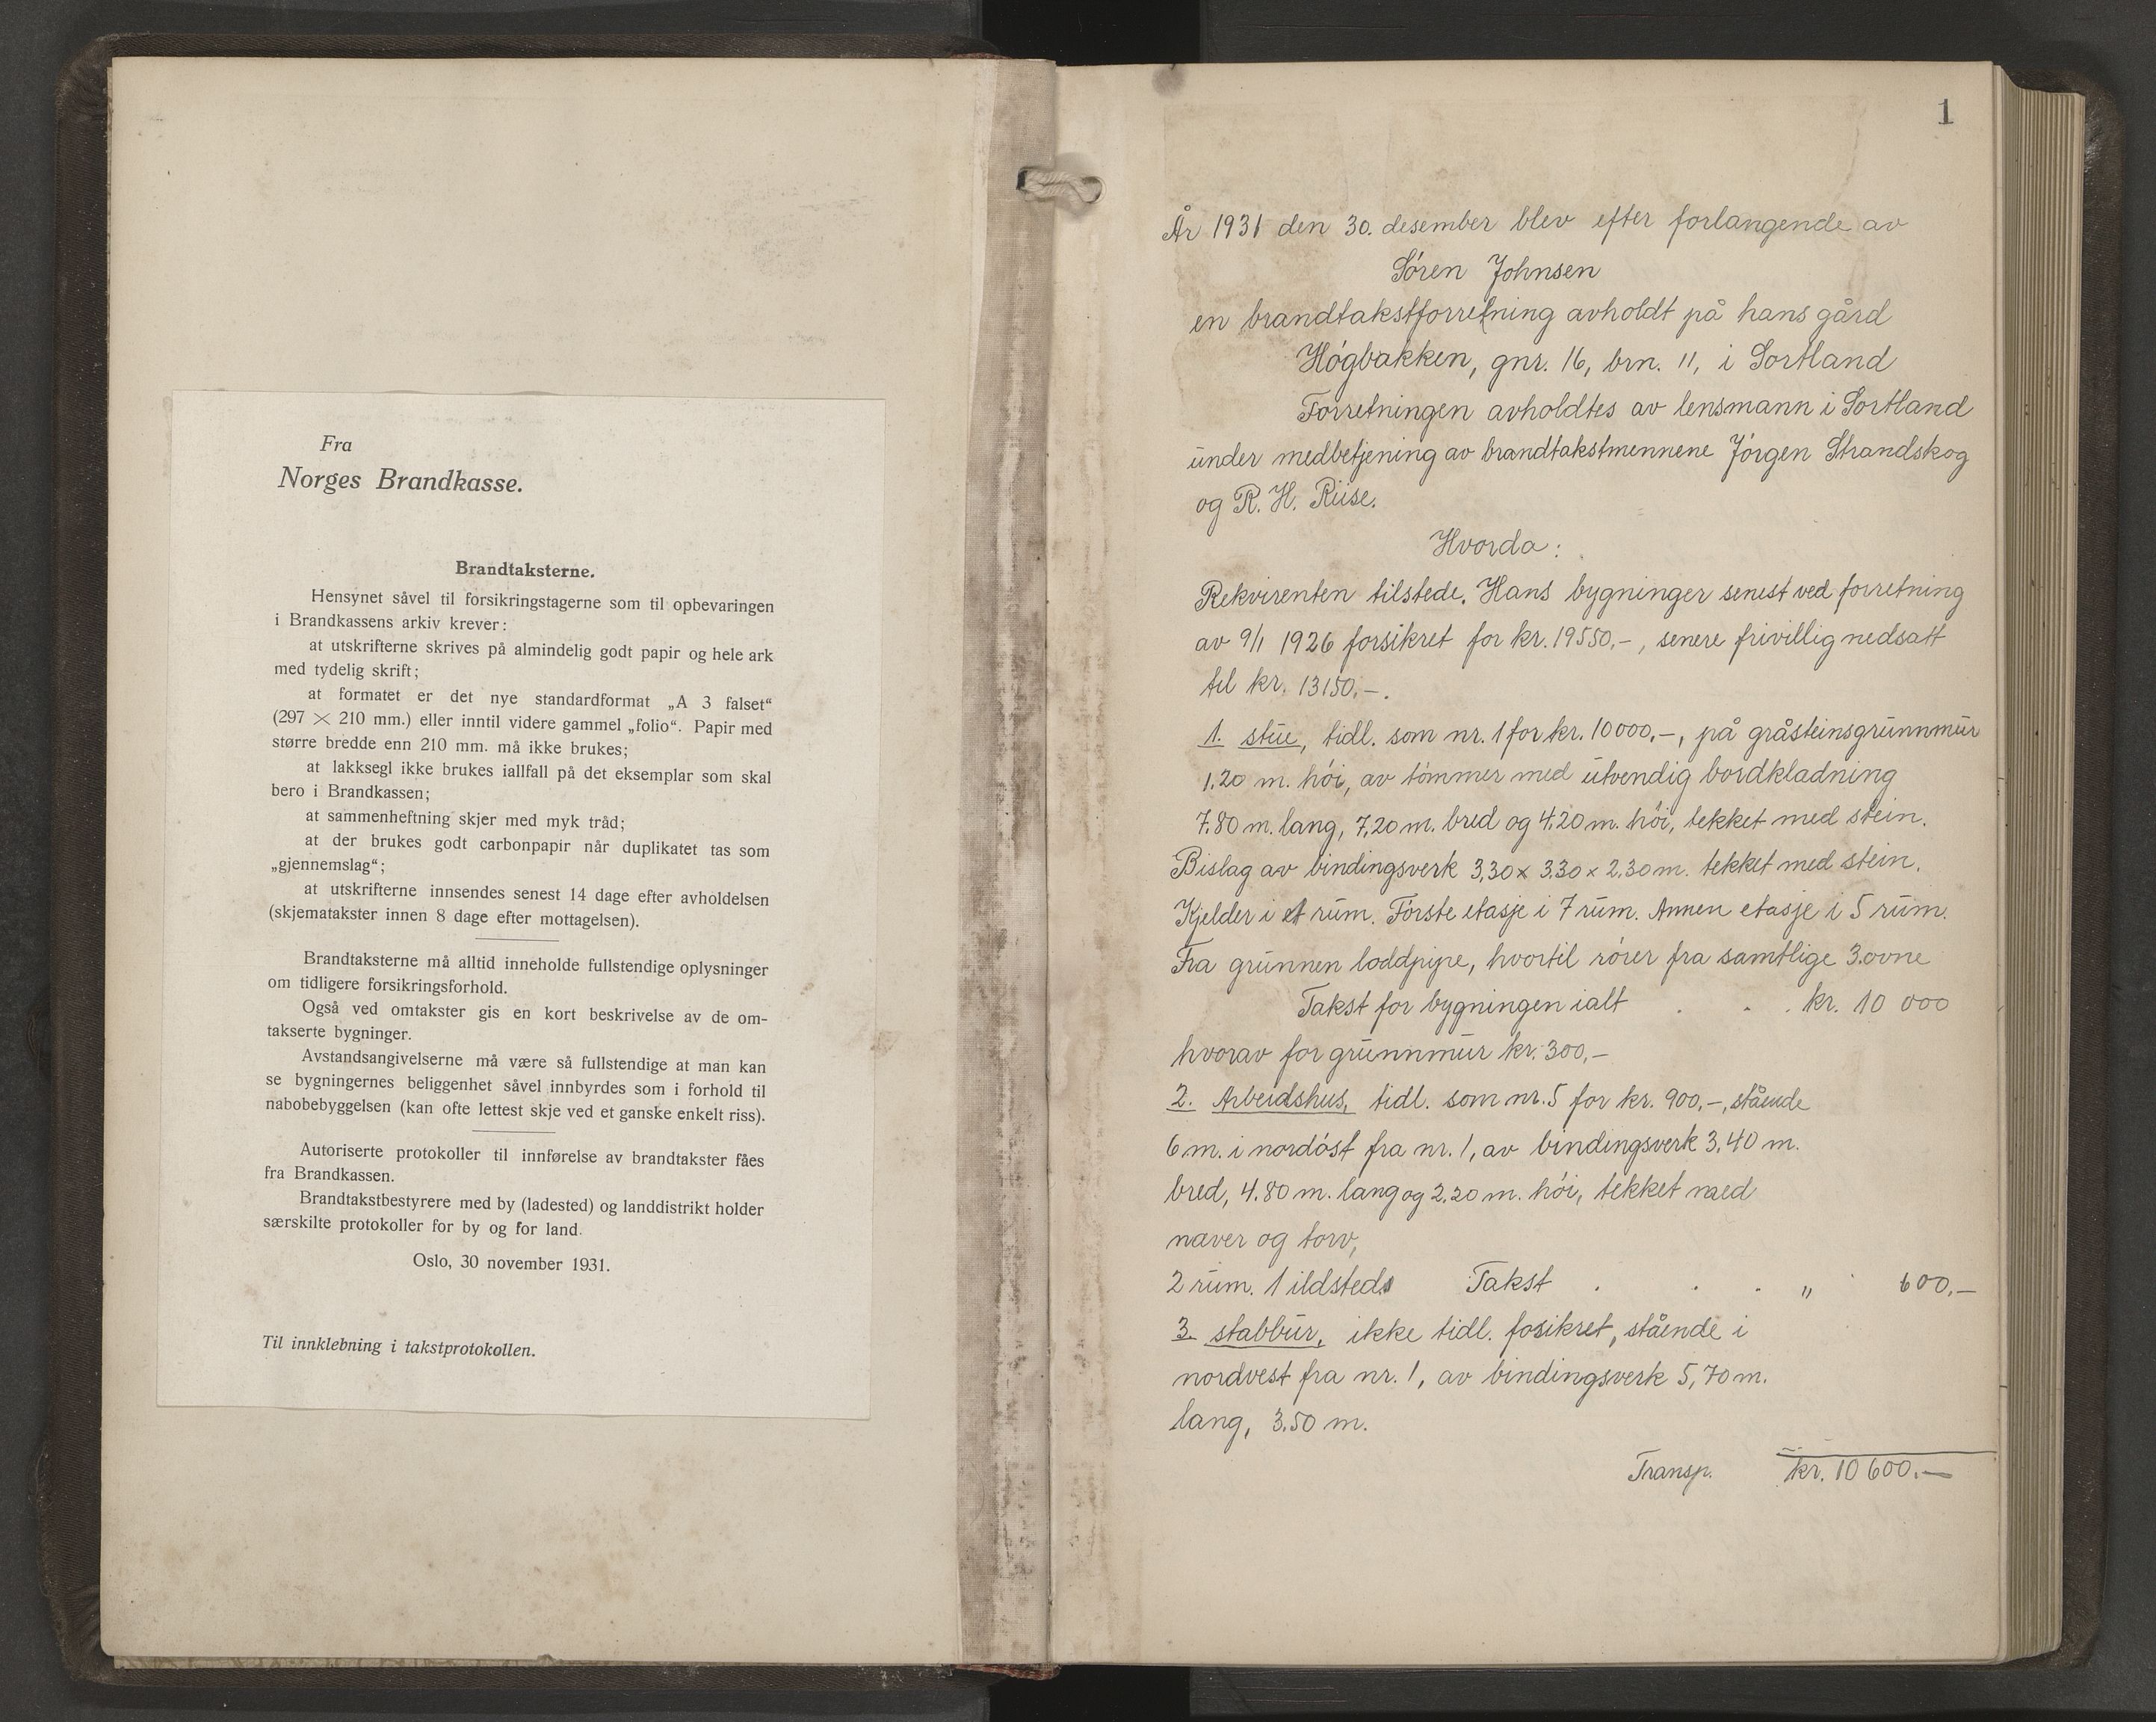 Fra
Norges Brandkasse.
Brandtaksterne.
Hensynet såvel til forsikringstagerne som til opbevaringen
i Brandkassens arkiv krever:
at utskrifterne skrives på almindelig godt papir og hele ark
med tydelig skrift;
at formatet er det nye standardformat „A 3 falset“
(297 × 210 mm.) eller inntil videre gammel „folio“. Papir med
større bredde enn 210 mm. må ikke brukes;
at lakksegl ikke brukes iallfall på det eksemplar som skal
bero i Brandkassen;
at sammenheftning skjer med myk tråd;
at der brukes godt carbonpapir når duplikatet tas som
„gjennemslag“;
at utskrifterne innsendes senest 14 dage efter avholdelsen
(skjematakster innen 8 dage efter mottagelsen).
Brandtaksterne må alltid inneholde fullstendige oplysninger
om tidligere forsikringsforhold.
Også ved omtakster gis en kort beskrivelse av de om-
takserte bygninger.
Avstandsangivelserne må være så fullstendige at man kan
se bygningernes beliggenhet såvel innbyrdes som i forhold til
nabobebyggelsen (kan ofte lettest skje ved et ganske enkelt riss).
Autoriserte protokoller til innførelse av brandtakster fåes
fra Brandkassen.
Brandtakstbestyrere med by (ladested) og landdistrikt holder
særskilte protokoller for by og for land.
Oslo, 30 november 1931.
Til innklebning i takstprotokollen.
1
År 1931 den 30. desember blev efter forlangende av
Sóren Johnsen
en brandtakstforretning avholdt på hans gård
Hógbakken, gnr. 16, brn. 11, i Sortland
Forretningen avholdtes av lensmann i Sortland
under medbetjening av brandtakstmennene Jórgen Strandskog
og R. H. Riise.
Hvorda:
Rekvirenten tilstede. Hans bygninger senest ved forretning
av 9/1 1926 forsikret for kr. 19550,-, senere frivillig nedsatt
til kr. 13150,-.
1. stue, tidl. som nr. 1 for kr. 10000,-, på gråsteinsgrunnmur
1.20 m. hói, av tómmer med utvendig bordkladning
7.80 m. lang, 7,20 m. bred og 4.20 m. hói, tekket med stein.
Bislag av bindingsverk 3,30 x 3.30 x 2.30 m. tekket med stein.
Kjelder i et rum. Fórste etasje i 7 rum. Annen etasje i 5 rum.
Fra grunnen loddpipe, hvortil rórer fra samtlige 3.ovne
Takst for bygningen ialt . . . kr. 10 000
hvorav for grunnmur kr. 300,-
2. Arbeidshus, tidl. som nr. 5 for kr. 900,-, stående
6 m. i nordóst fra nr. 1, av bindingsverk 3,40 m.
bred, 4.80 m. lang og 2.20 m. hói, tekket med
naver og torv,
2 rum. 1 ildsteds Takst . . . " 600,-
3. stabbur, ikke tidl. fosikret, stående i
nordvest fra nr. 1, av bindingsverk 5,70 m.
lang, 3.50 m.
Transp. kr. 10600.-